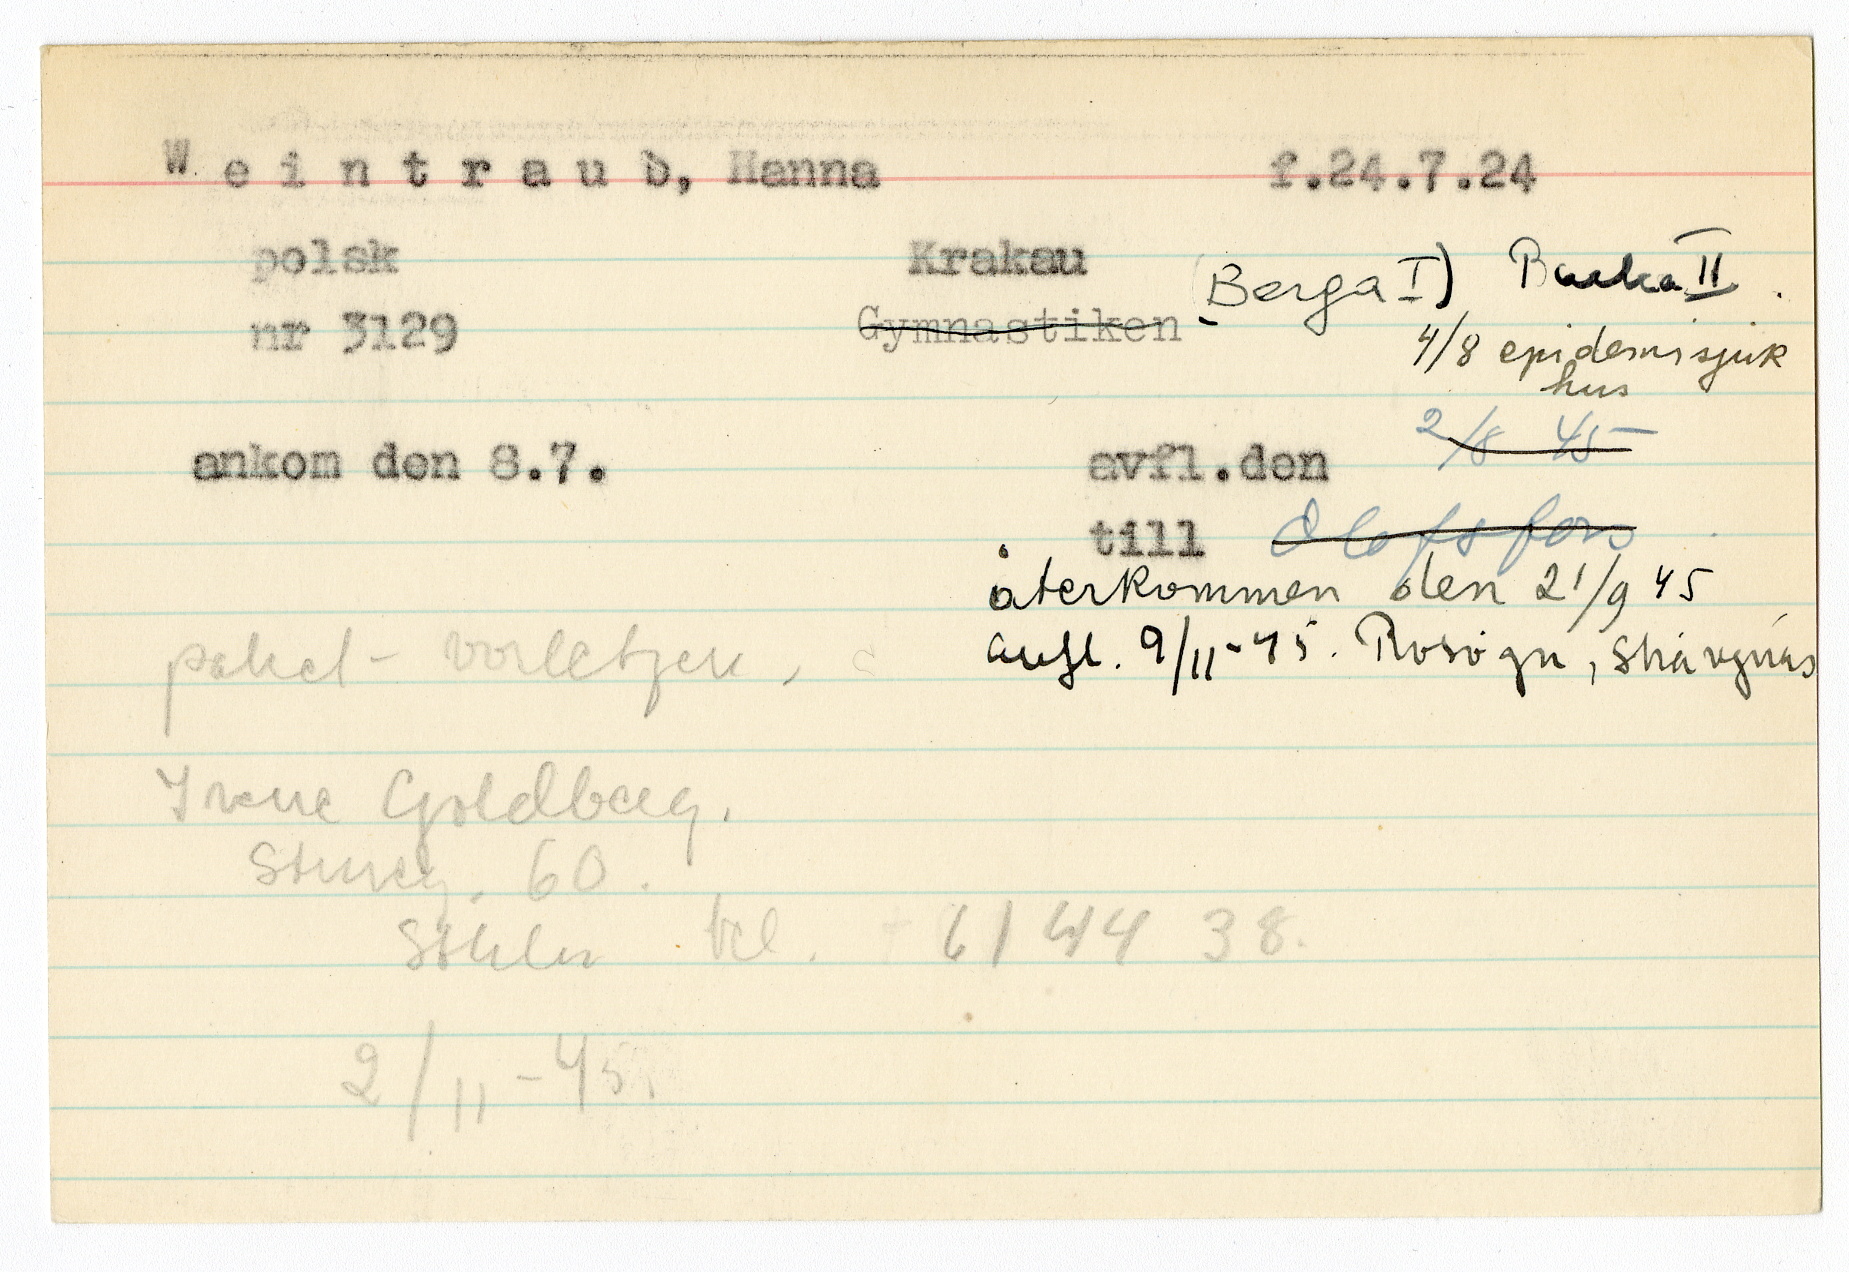 W e i n t r a u b, Hanna f.24.7.24
polsk Krakau (Berga I) Backa II.
nr 3129 Gymnastiken
4/8 epidemisjuk
hus
ankom den 8.7. avfl.den 2/8 45
till Olofsfors
återkommen den 21/9 45
avfl. 9/11-45. Rosögn, Strängnäs
paket-
Irene Goldberg.
Stureg. 60.
Sthlm tel. 61 44 38.
2/11-45.